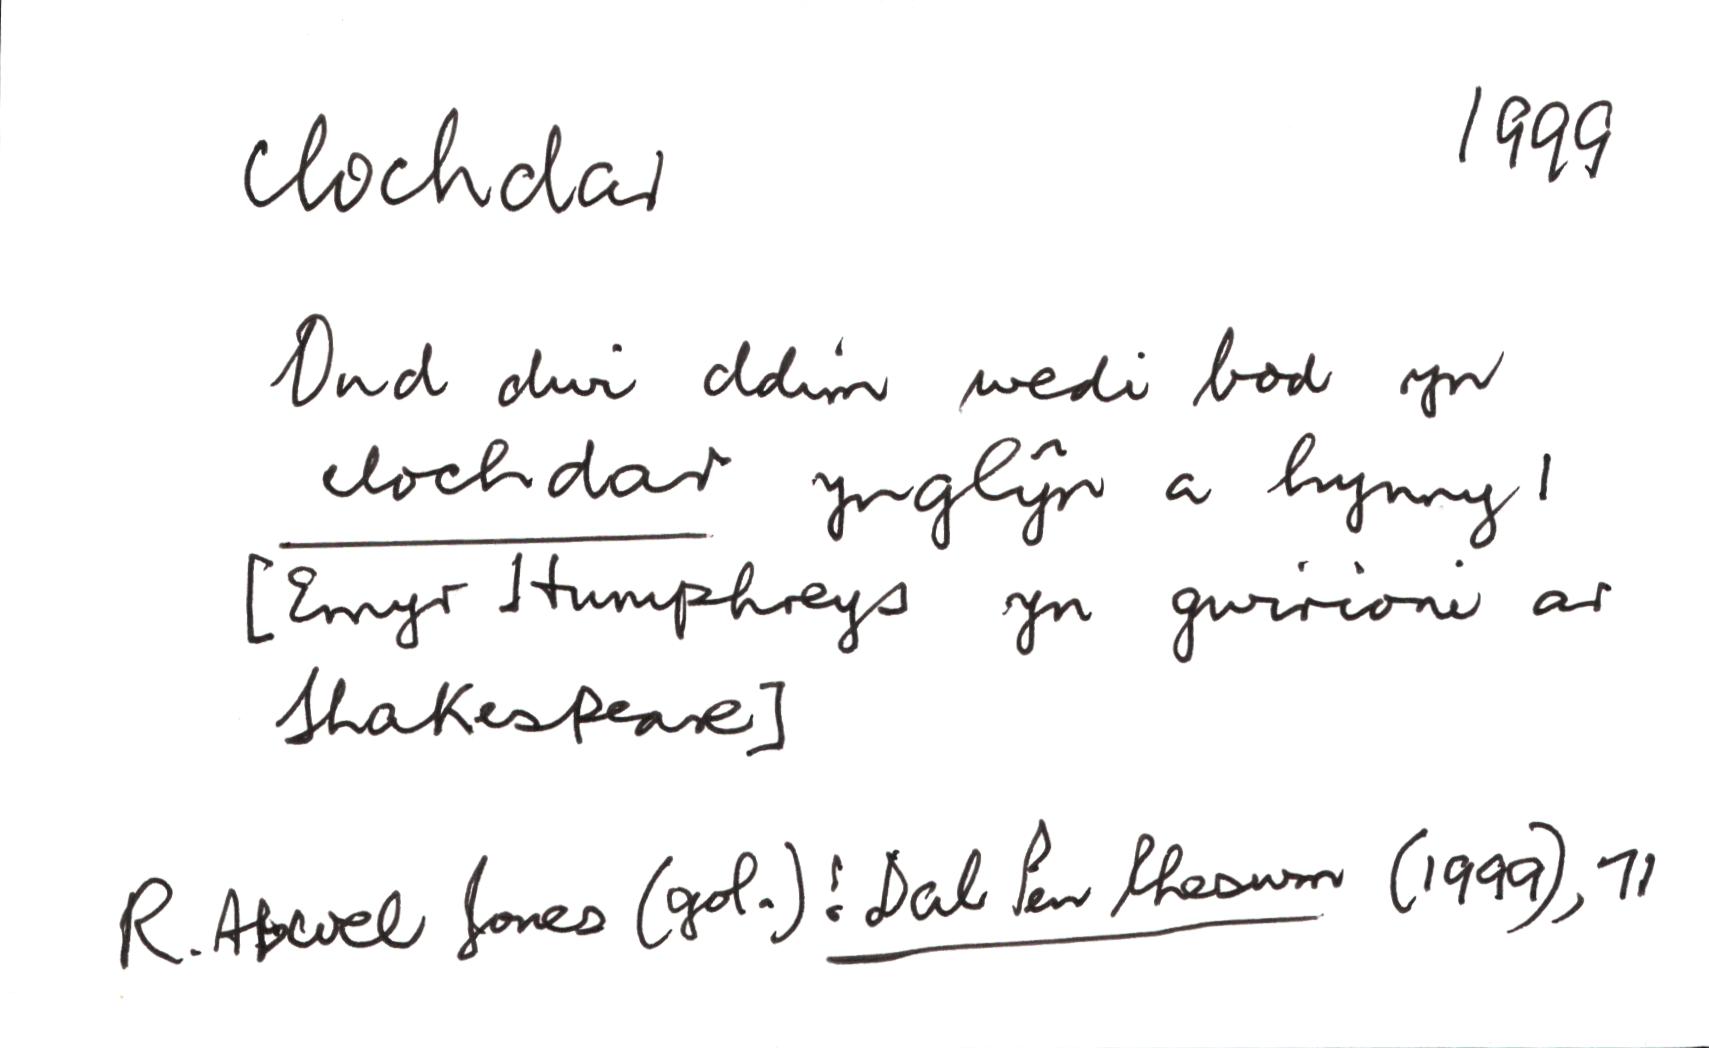 clochdar 1999
Ond dwi ddim wedi bod yn
clochdar ynglŷn a hynny!
[Emyr Humphreys yn gwirioni ar
Shakespeare]
R. Arwel Jones (gol.): Dal Pen Rheswm (1999), 71